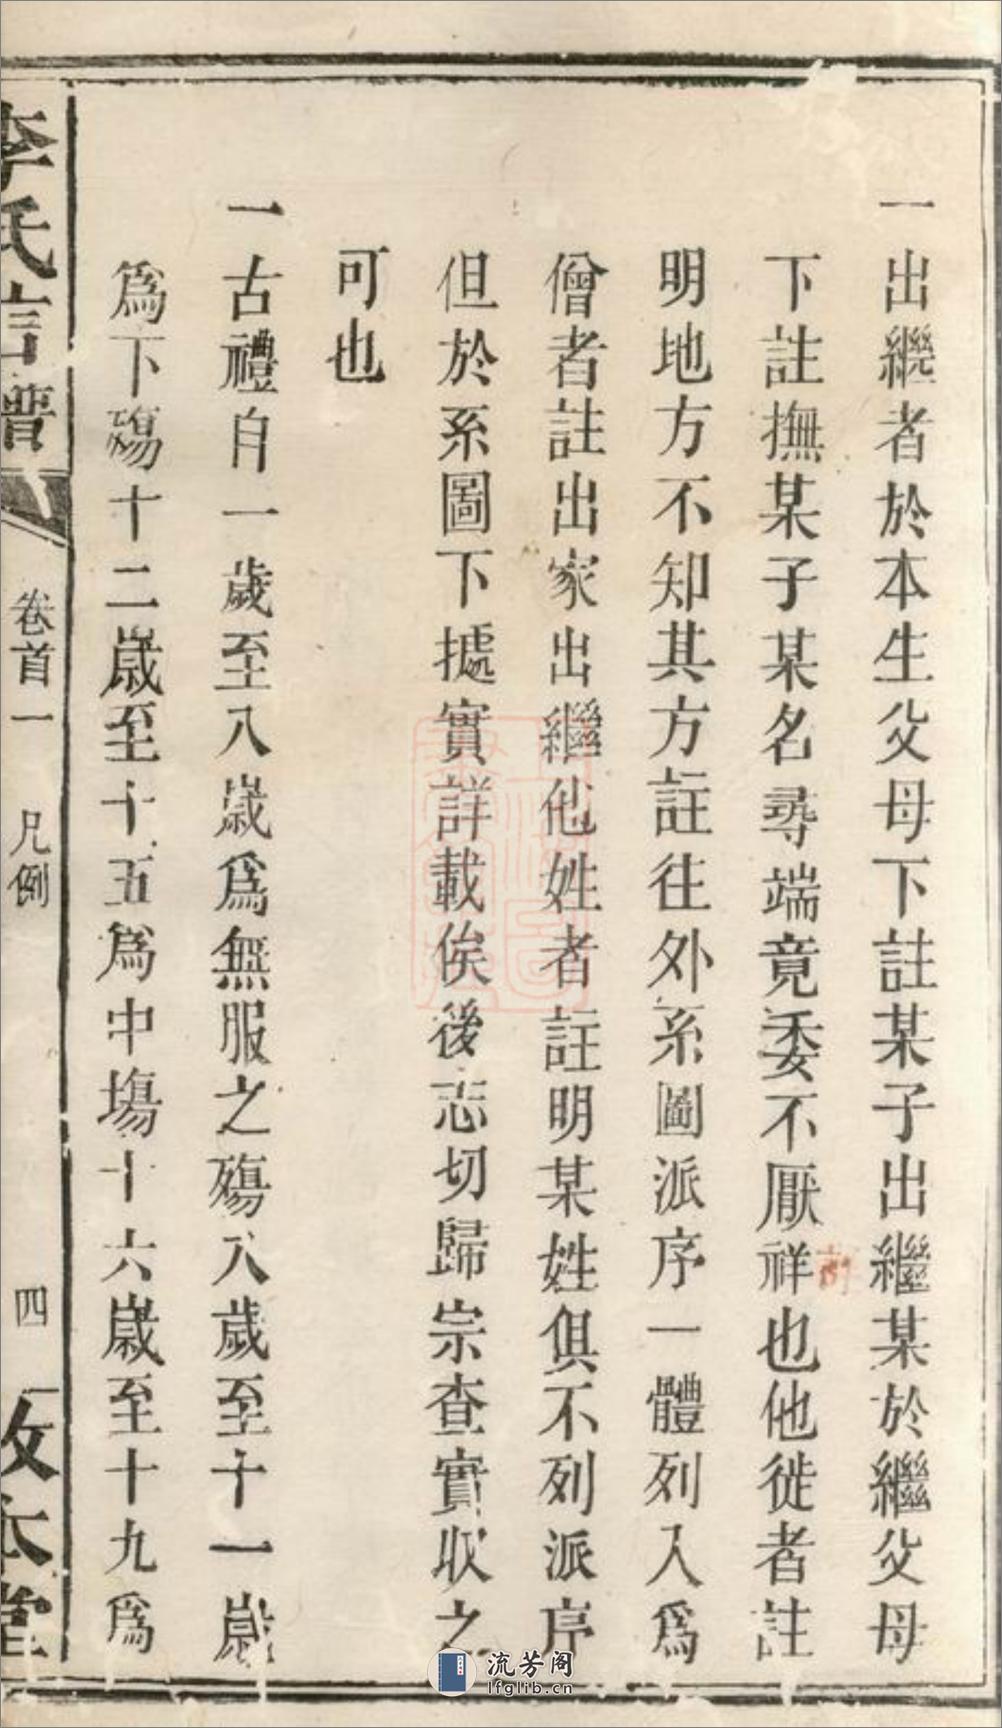 一出繼者於本生父母下註某子出繼某於繼父母
下註撫某子某名尋端竟委不厭祥也他徙者註
明地方不知其方註往外系圖派序一體列入為
僧者註出家出繼他姓者註明某姓俱不列派序
但於系圖下據實詳載俟後志切歸宗查實收之
可也
一古禮自一歲至八歲為無服之殤八歲至十一歲
為下殤十二歲至十五為中塲十六歲至十九為
李氏言譜
卷首一 凡例
四
敦本堂
流芳阁
lfglib.cn